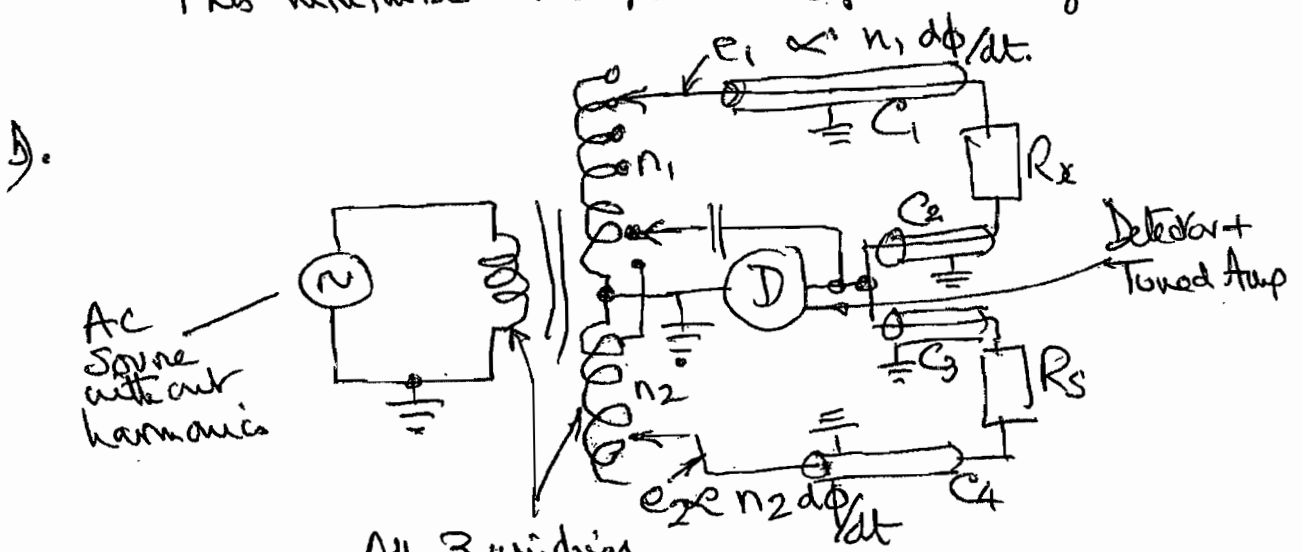 e₁ ∝ n₁ dφ/dt.
D).
C₁
n₁
Rx
C₂
Detector +
Tuned Amp
D
AC
Source
without
harmonics
C₃
Rs
n₂
e₂ ∝ n₂ dφ/dt
C₄
All 3 windings